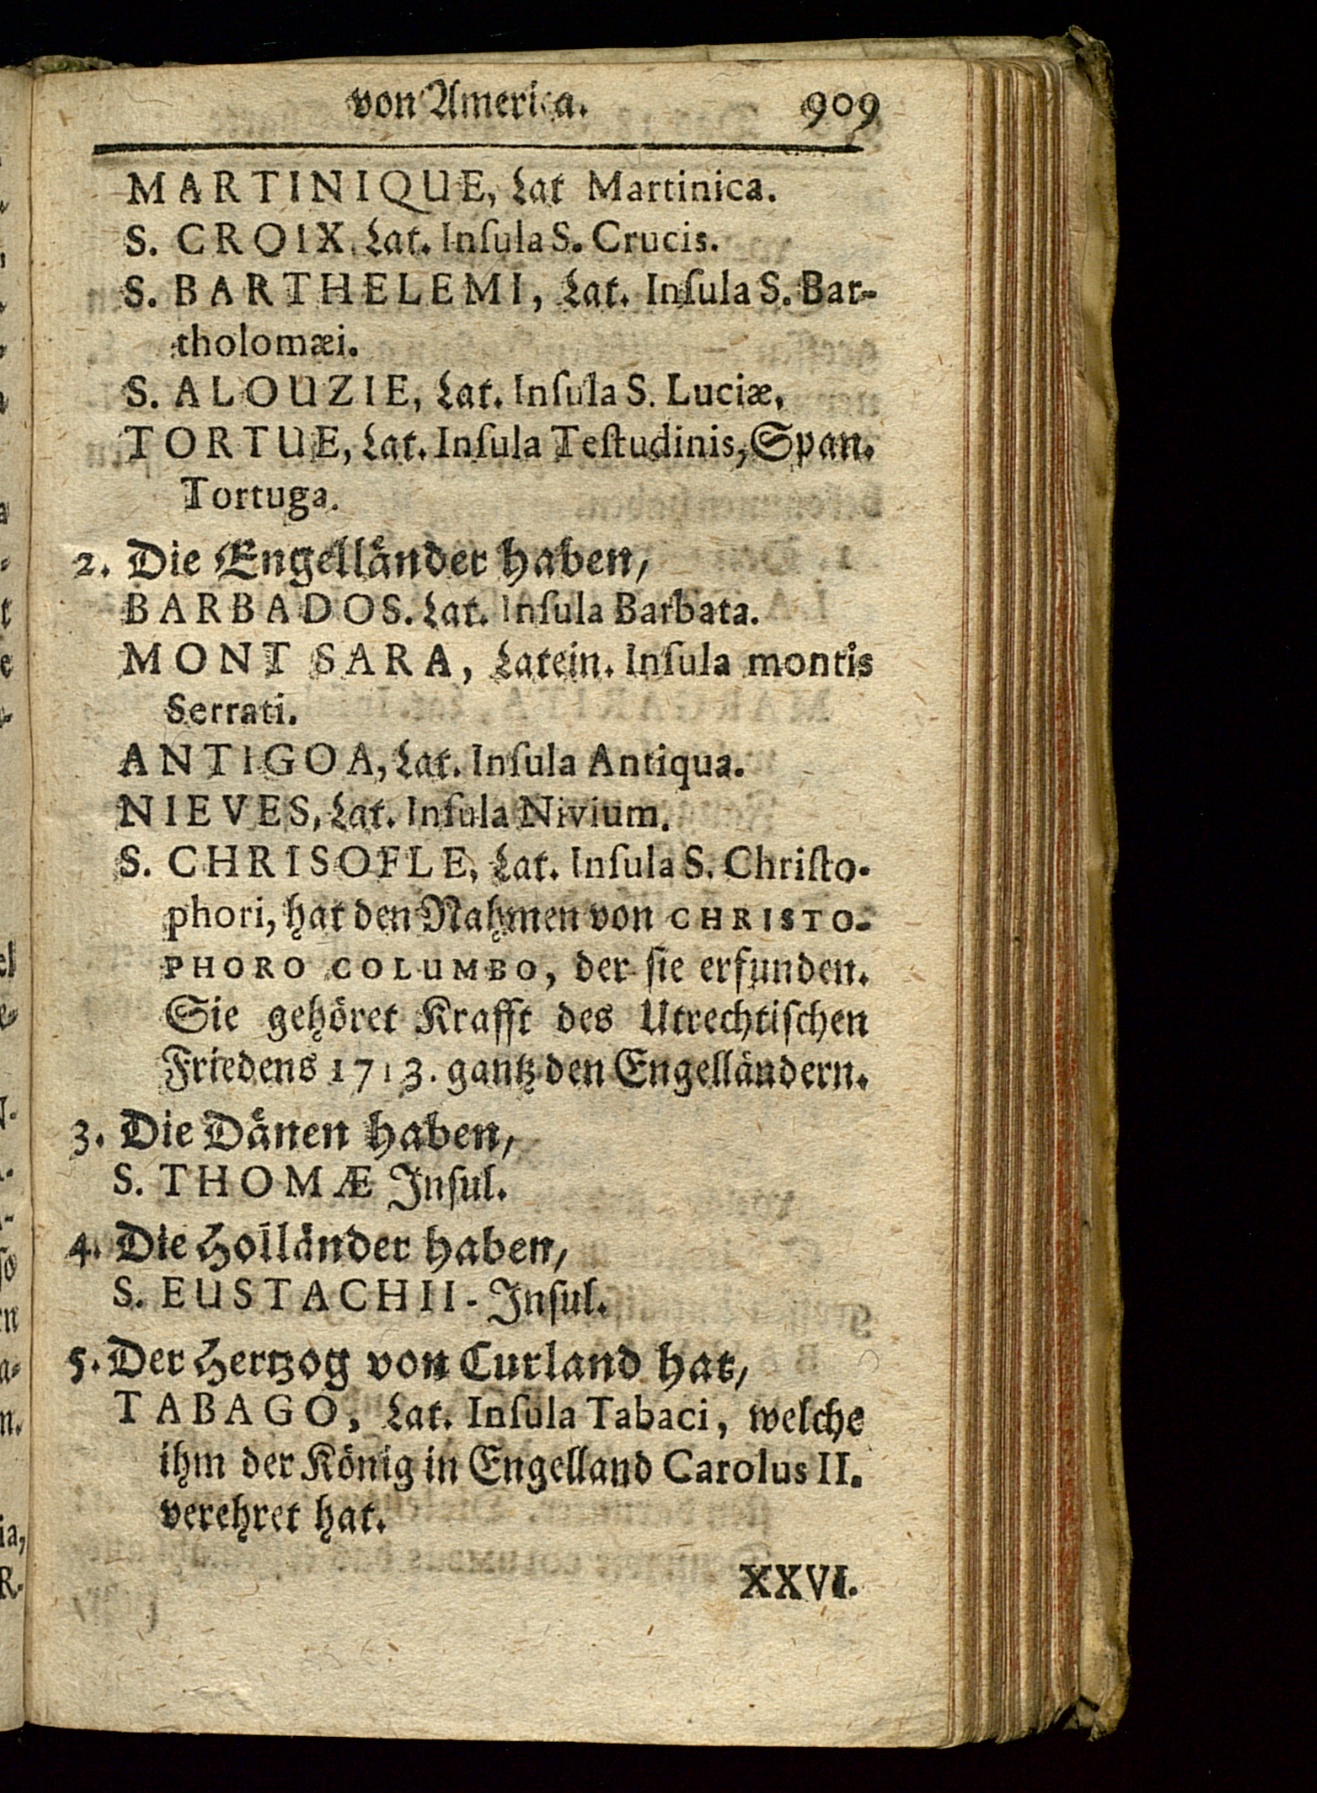 von America. 909
MARTINIQUE, Lat Martinica.
S. CROIX. Lat. Inſula S. Crucis.
S. BARTHELEMI, Lat. Inſula S. Bar-
tholomæi.
S. ALOUZIE, Lat. Inſula S. Luciæ,
TORTUE, Lat. Inſula Teſtudinis, Span.
Tortuga.
2. Die Engelländer haben/
BARBADOS. Lat. Inſula Barbata.
MONT SARA, Latein. Inſula montis
Serrati.
ANTIGOA, Lat. Inſula Antiqua.
NIEVES, Lat. Inſula Nivium.
S. CHRISOFLE, Lat. Inſula S. Chriſto-
phori, hat den Nahmen von CHRISTO-
PHORO COLUMBO, der ſie erfunden.
Sie gehöret Krafft des Utrechtiſchen
Friedens 1713. gantz den Engelländern.
3. Die Dänen haben/
S. THOMÆ Inſul.
4. Die Holländer haben/
S. EUSTACHII-Inſul.
5. Der Hertzog von Curland hat/
TABAGO, Lat. Inſula Tabaci, welche
ihm der König in Engelland Carolus II.
verehret hat.
XXVI.